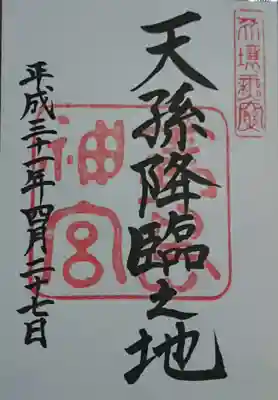 天孫降臨之地
神宮
平成三十一年四月二十七日